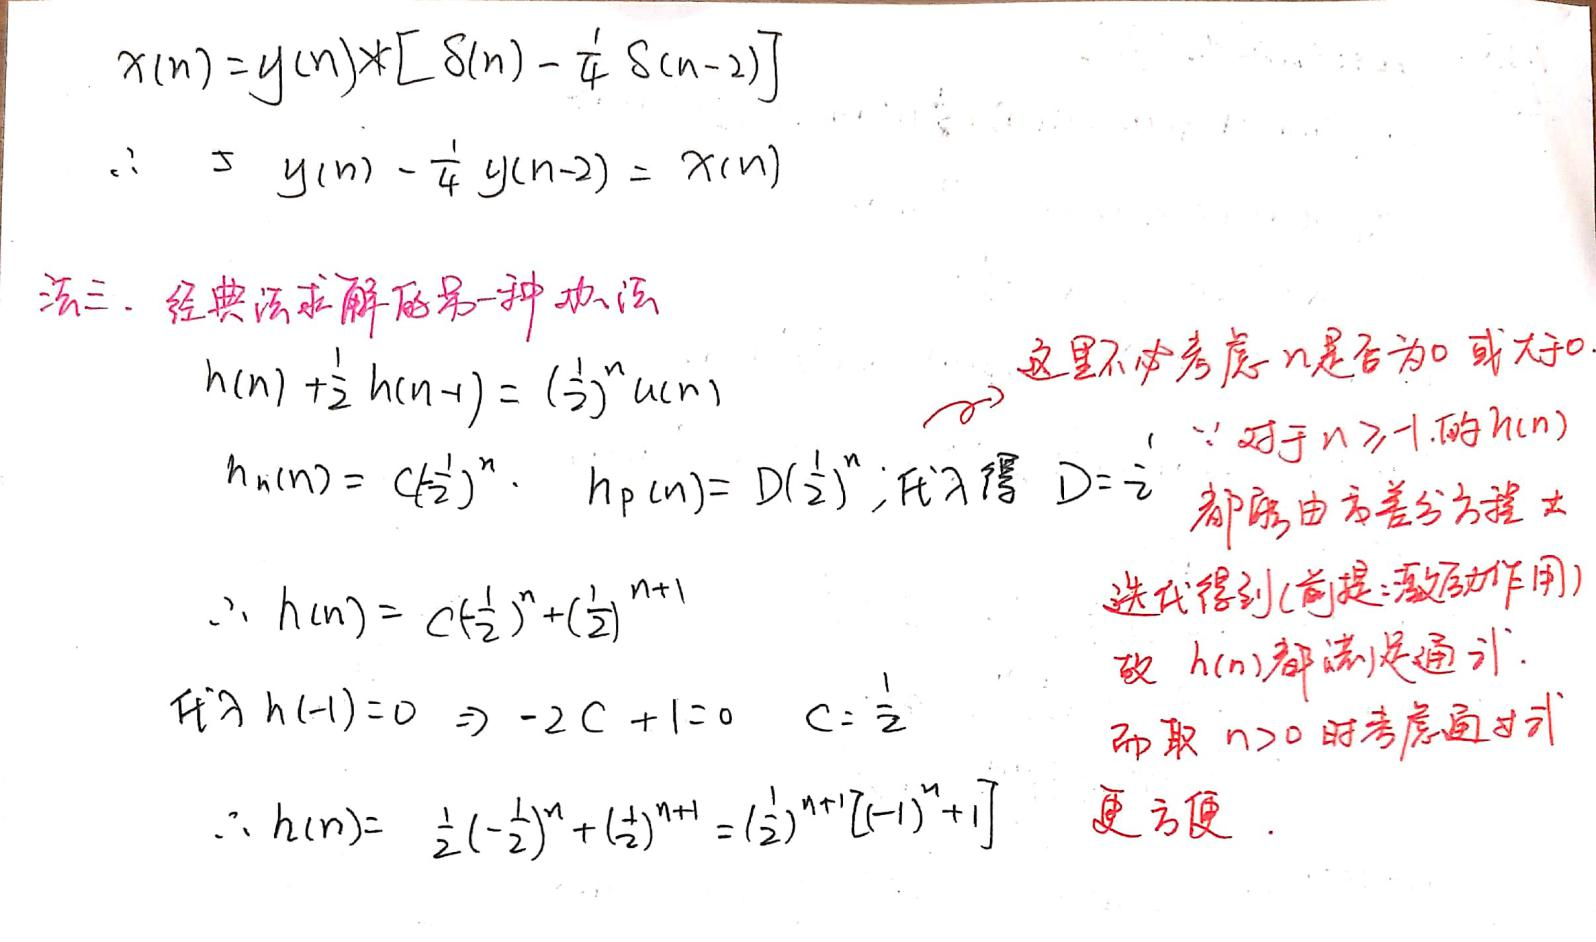 x(n)=y(n)*[δ(n)-1/4 δ(n-2)]
∴ y(n)-1/4 y(n-2)=x(n)
法三.经典法求解的另一种办法
h(n)+1/2 h(n-1)=(1/2)^n u(n)
h_h(n)=C(-1/2)^n. h_p(n)=D(1/2)^n;代入得 D=1/2
∴ h(n)=C(-1/2)^n+(1/2)^{n+1}
代入 h(-1)=0 ⇒ -2C+1=0 C=1/2
∴ h(n)=1/2(-1/2)^n+(1/2)^{n+1}=(1/2)^{n+1}[(-1)^n+1]
这里不必考虑n是否为0或大于0.
∵ 对于n≥-1.的h(n)
都由差分方程
迭代得到(前提:激励作用)
故 h(n)都满足通式.
而取 n>0 时考虑通式
更方便.